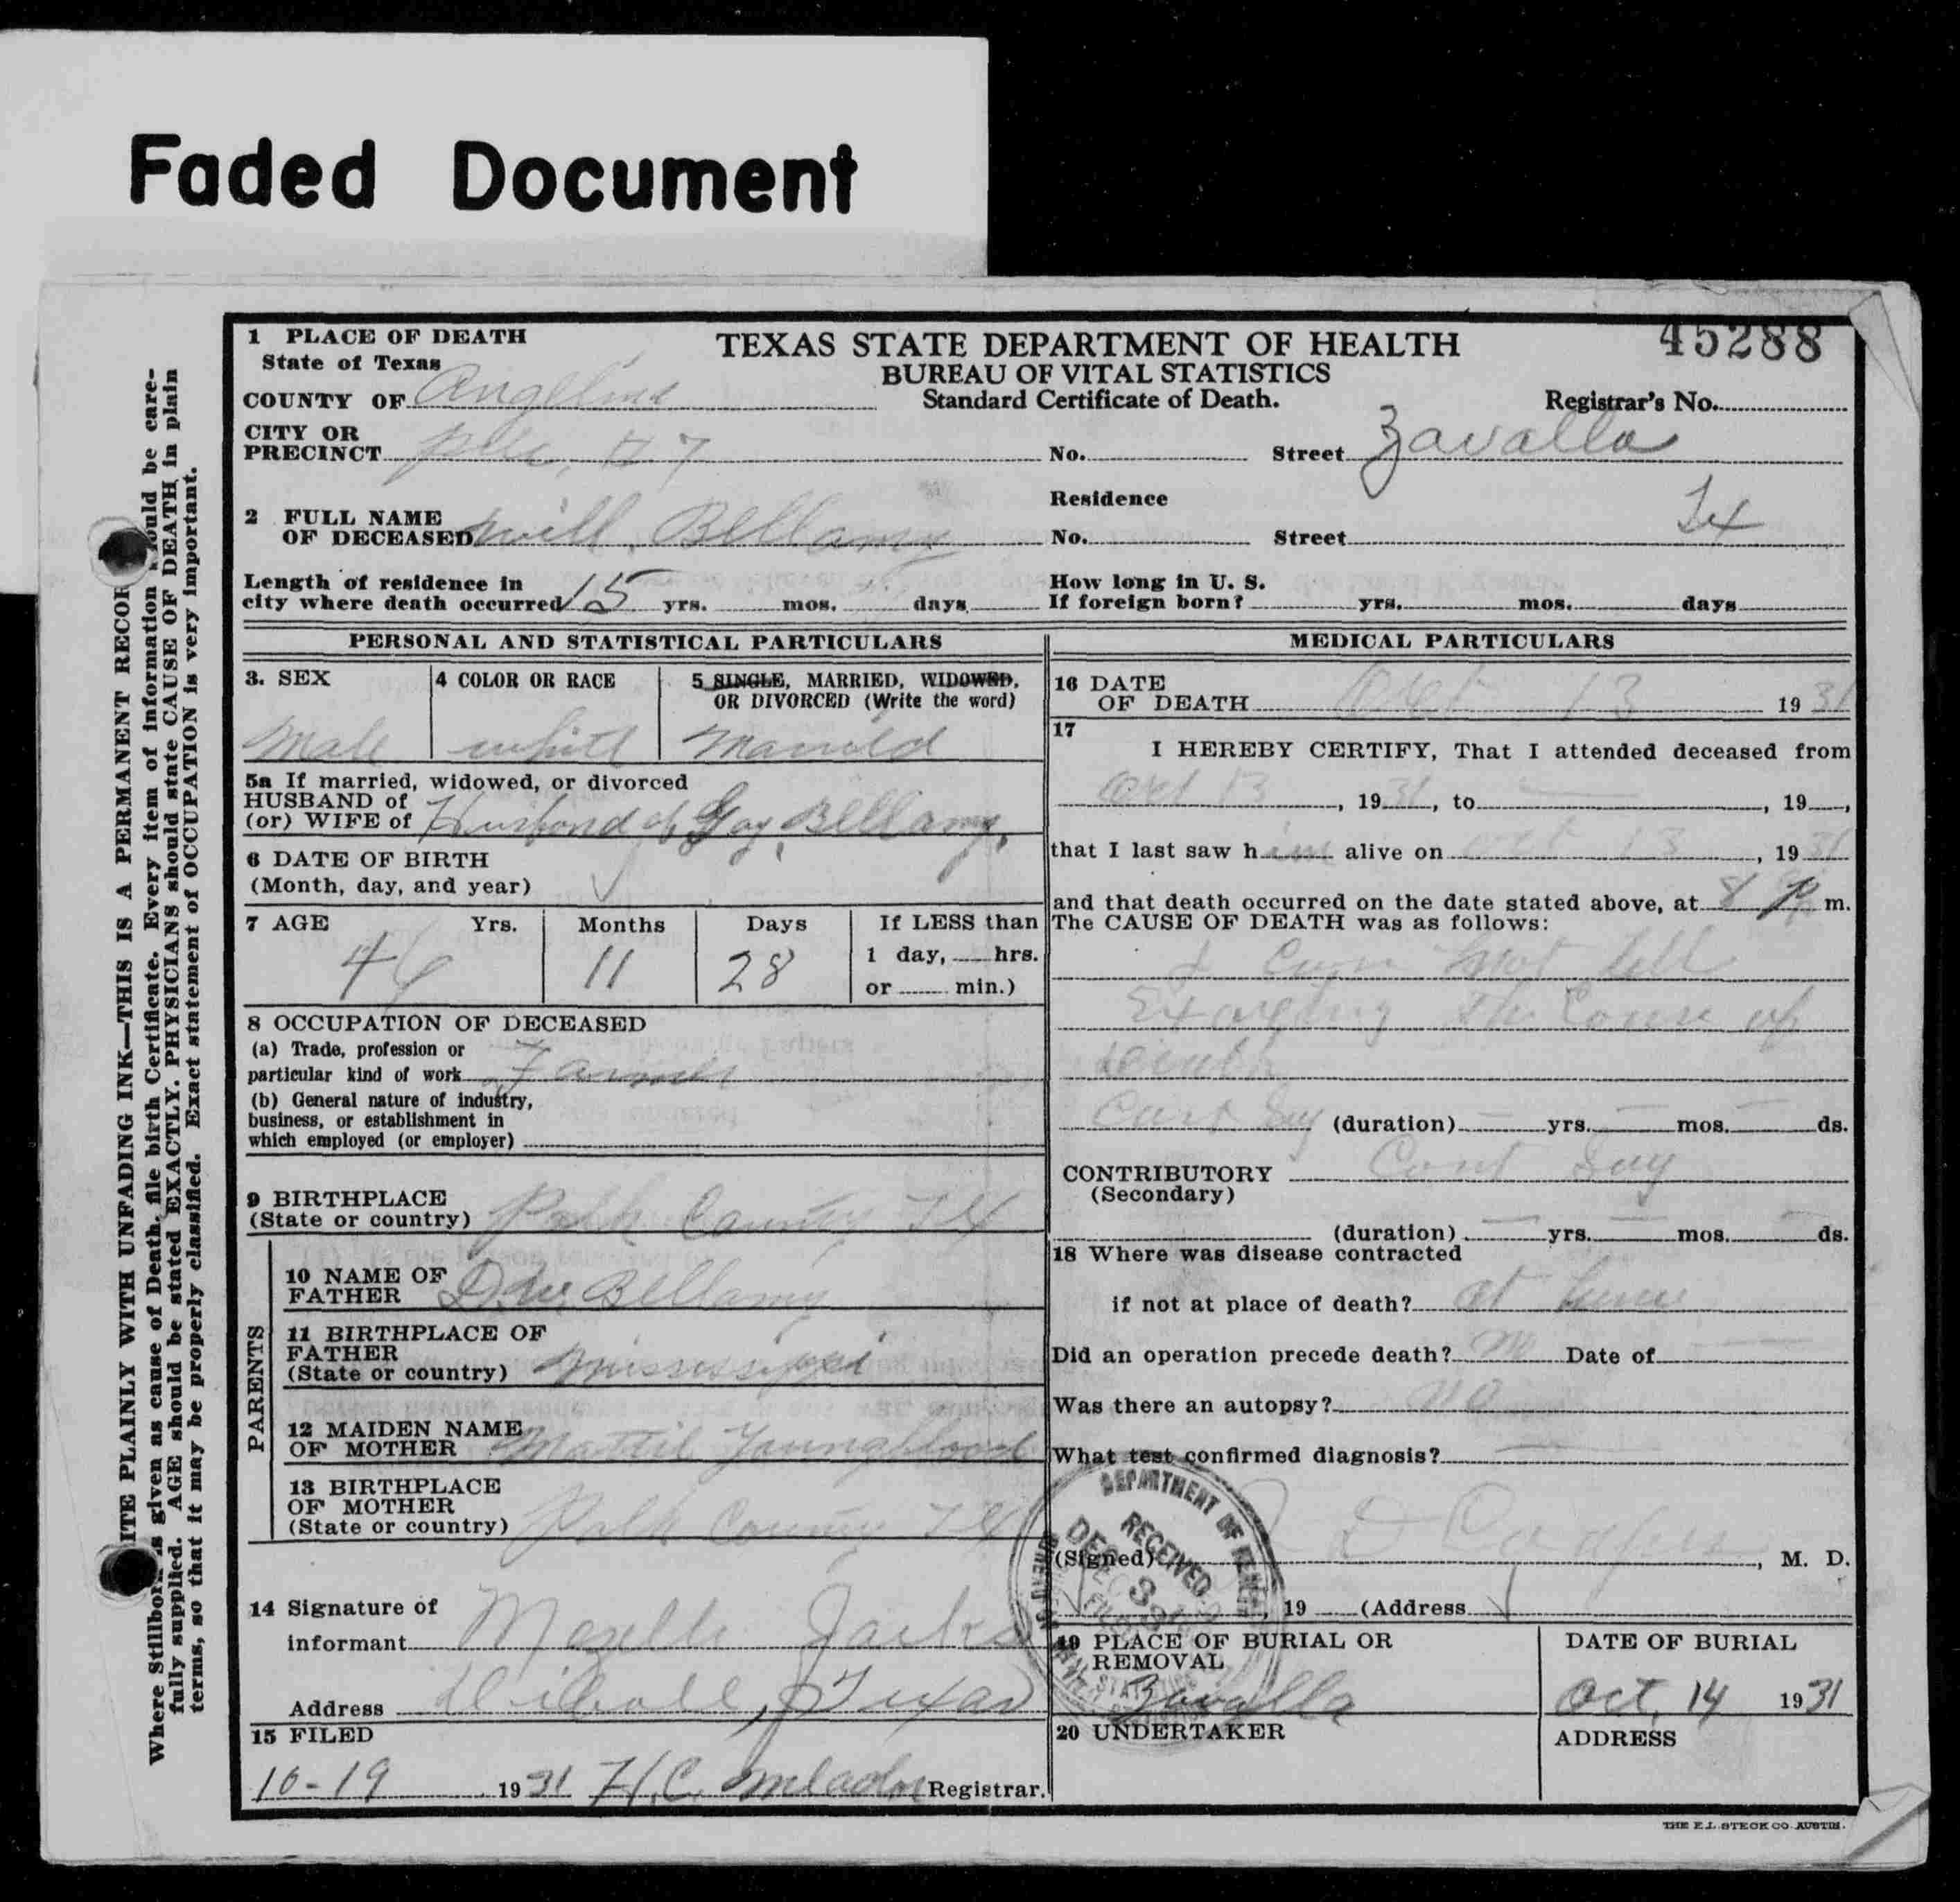 Faded Document
45288
1 PLACE OF DEATH
State of Texas
TEXAS STATE DEPARTMENT OF HEALTH
BUREAU OF VITAL STATISTICS
Standard Certificate of Death.
COUNTY OF Angelina
Registrar's No.
CITY OR
PRECINCT # 7
No. Street Zavalla
Residence
Tx
2 FULL NAME
OF DECEASED Will Bellamy
No. Street
Length of residence in
city where death occurred 15 yrs. mos. days
How long in U. S.
If foreign born? yrs. mos. days
PERSONAL AND STATISTICAL PARTICULARS
3. SEX
Male
4 COLOR OR RACE
white
5 SINGLE, MARRIED, WIDOWED,
OR DIVORCED (Write the word)
Married
5a If married, widowed, or divorced
HUSBAND of
(or) WIFE of Husband of Gay Bellamy.
6 DATE OF BIRTH
(Month, day, and year)
7 AGE Yrs. Months Days
46 11 28
If LESS than
1 day, hrs.
or min.)
8 OCCUPATION OF DECEASED
(a) Trade, profession or
particular kind of work Farmer
(b) General nature of industry,
business, or establishment in
which employed (or employer)
9 BIRTHPLACE
(State or country) Polk County Tx
PARENTS
10 NAME OF
FATHER D.W. Bellamy
11 BIRTHPLACE OF
FATHER
(State or country) Mississippi
12 MAIDEN NAME
OF MOTHER Mattie Youngblood
13 BIRTHPLACE
OF MOTHER
(State or country) Polk County Tx
14 Signature of
informant Mozelle
Address Diboll, Texas
15 FILED
10-19 1931 H.C. Meador Registrar.
MEDICAL PARTICULARS
16 DATE
OF DEATH Oct 13 1931
17
I HEREBY CERTIFY, That I attended deceased from
Oct 13, 1931, to , 19 ,
that I last saw him alive on Oct 13, 1931
and that death occurred on the date stated above, at 8 P m.
The CAUSE OF DEATH was as follows:
I can not tell
the Cause of
Death
Cant Say (duration) yrs. mos. ds.
CONTRIBUTORY Cant Say
(Secondary)
(duration) yrs. mos. ds.
18 Where was disease contracted
if not at place of death? at home
Did an operation precede death? no Date of
Was there an autopsy? no
What test confirmed diagnosis?
(Signed) , M. D.
, 19 (Address
DEPARTMENT OF HEALTH
RECEIVED
DEC
19 PLACE OF BURIAL OR
REMOVAL
Zavalla
DATE OF BURIAL
Oct, 14 1931
20 UNDERTAKER
ADDRESS
THE E.L. STECK CO. AUSTIN.
WRITE PLAINLY WITH UNFADING INK—THIS IS A PERMANENT RECOR
Where Stillborn is given as cause of Death, file birth Certificate. Every item of information should be care-
fully supplied. AGE should be stated EXACTLY. PHYSICIANS should state CAUSE OF DEATH in plain
terms, so that it may be properly classified. Exact statement of OCCUPATION is very important.